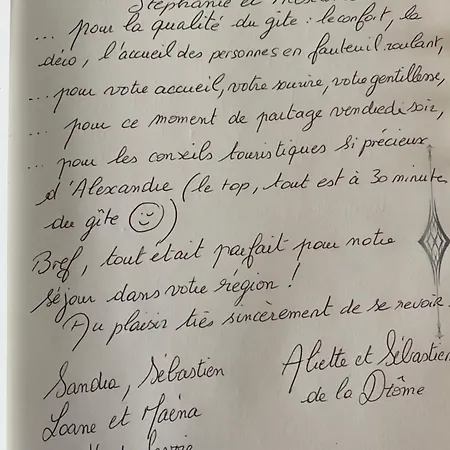 Stéphanie et
... pour la qualité du gîte : le confort, la
déco, l'accueil des personnes en fauteuil roulant,
... pour votre accueil, votre sourire, votre gentillesse,
... pour ce moment de partage vendredi soir,
... pour les conseils touristiques si précieux
d'Alexandre (le top, tout est à 30 minutes
du gîte)
Bref, tout était parfait pour notre
séjour dans votre région !
Au plaisir très sincèrement de se revoir.
Sandra, Sébastien
Loane et Maéna
Aliette et Sébastien
de la Drôme